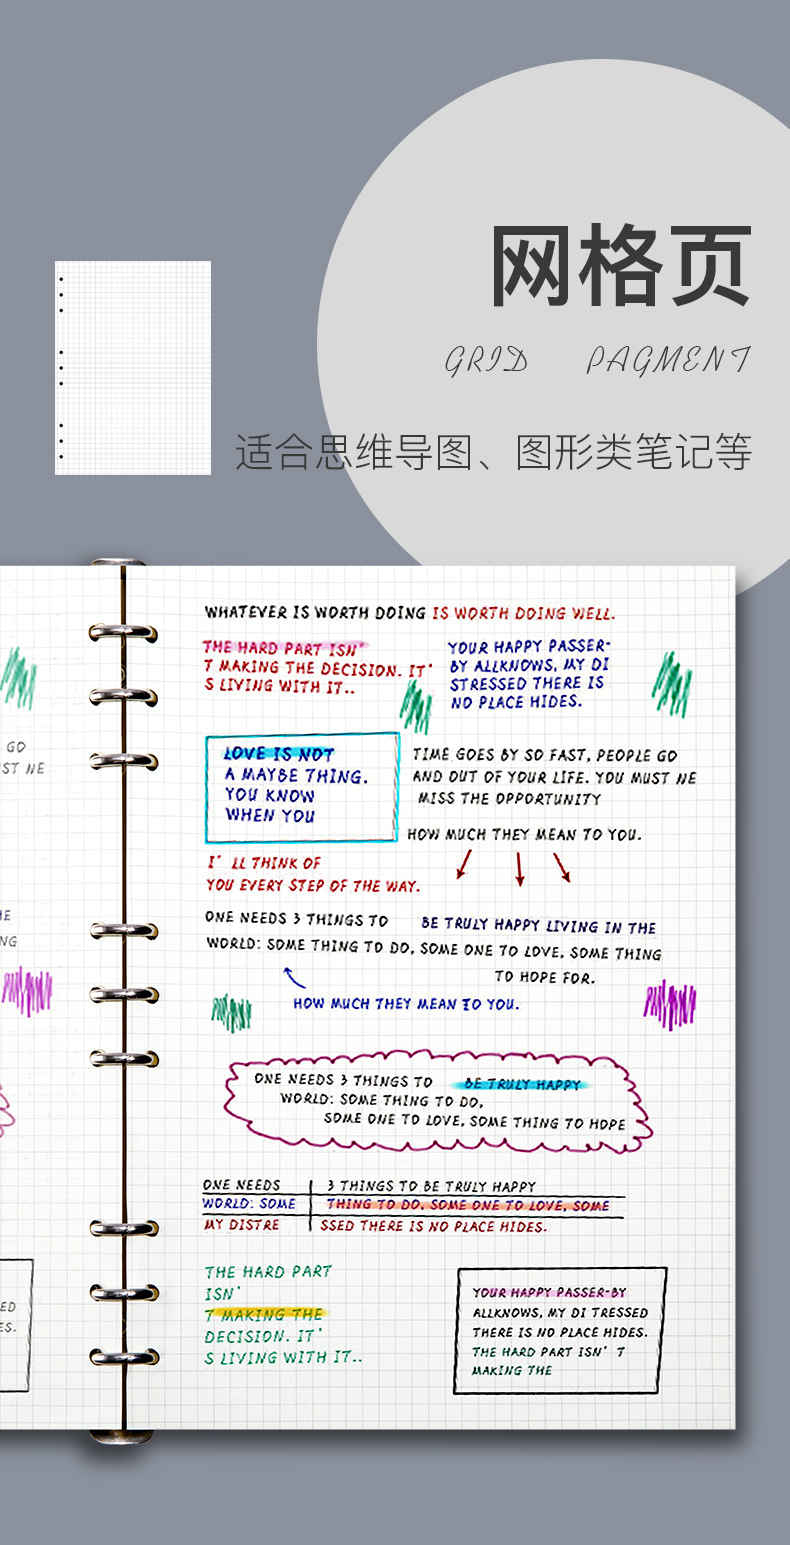 网格页
GRID PAGMENT
适合思维导图、图形类笔记等
WHATEVER IS WORTH DOING IS WORTH DOING WELL.
THE HARD PART ISN'
T MAKING THE DECISION. IT'
S LIVING WITH IT..
YOUR HAPPY PASSER-
BY ALLKNOWS, MY DI
STRESSED THERE IS
NO PLACE HIDES.
GO
UST NE
LOVE IS NOT
A MAYBE THING.
YOU KNOW
WHEN YOU
TIME GOES BY SO FAST, PEOPLE GO
AND OUT OF YOUR LIFE. YOU MUST NE
MISS THE OPPORTUNITY
HOW MUCH THEY MEAN TO YOU.
I' LL THINK OF
YOU EVERY STEP OF THE WAY.
HE
NG
ONE NEEDS 3 THINGS TO BE TRULY HAPPY LIVING IN THE
WORLD: SOME THING TO DO, SOME ONE TO LOVE, SOME THING
TO HOPE FOR.
HOW MUCH THEY MEAN TO YOU.
ONE NEEDS 3 THINGS TO BE TRULY HAPPY
WORLD: SOME THING TO DO,
SOME ONE TO LOVE, SOME THING TO HOPE
ONE NEEDS 3 THINGS TO BE TRULY HAPPY
WORLD: SOME THING TO DO, SOME ONE TO LOVE, SOME
MY DISTRE SSED THERE IS NO PLACE HIDES.
THE HARD PART
ISN'
T MAKING THE
DECISION. IT'
S LIVING WITH IT..
ED
ES.
YOUR HAPPY PASSER-BY
ALLKNOWS, MY DI TRESSED
THERE IS NO PLACE HIDES.
THE HARD PART ISN' T
MAKING THE